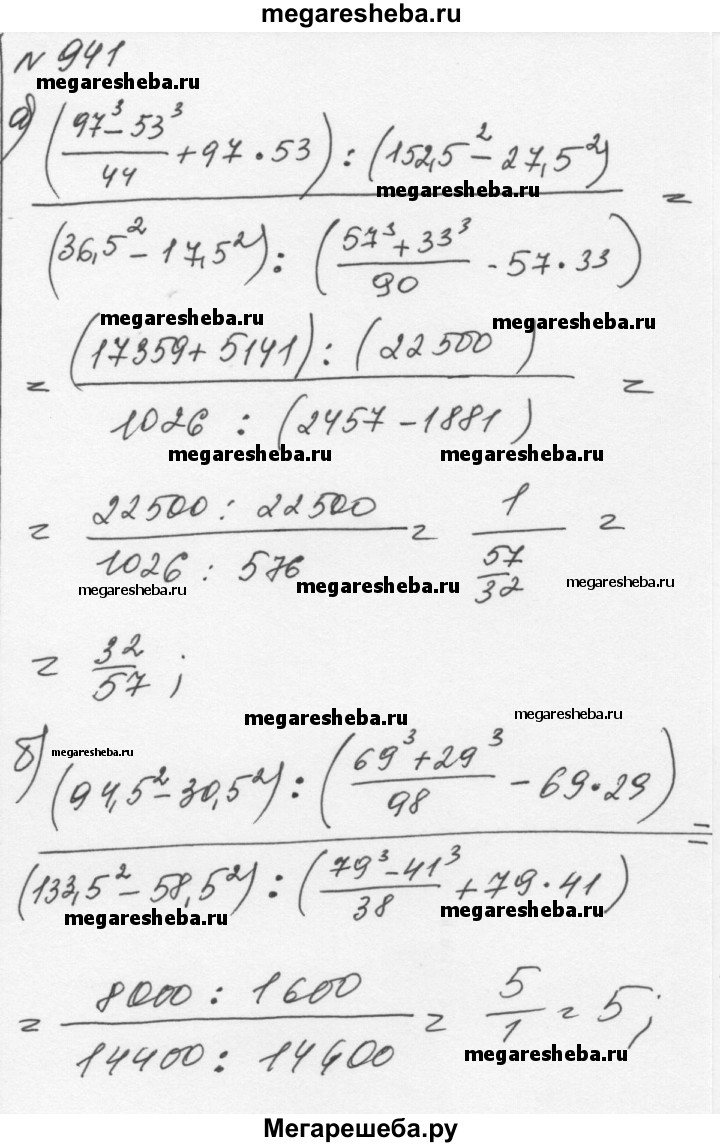 megaresheba.ru
N 941
megaresheba.ru
а) ((97³ - 53³)/44 + 97 · 53) : (152,5² - 27,5²)
megaresheba.ru
=
(36,5² - 17,5²) : ((57³ + 33³)/90 - 57 · 33)
megaresheba.ru megaresheba.ru
(17359 + 5141) : (22500)
= =
1026 : (2457 - 1881)
megaresheba.ru megaresheba.ru
= (22500 : 22500)/(1026 : 576) = 1/(57/32) =
megaresheba.ru megaresheba.ru megaresheba.ru
= 32/57 ;
megaresheba.ru megaresheba.ru
megaresheba.ru
б) (94,5² - 30,5²) : ((69³ + 29³)/98 - 69 · 29)
=
(133,5² - 58,5²) : ((79³ - 41³)/38 + 79 · 41)
megaresheba.ru megaresheba.ru
= (8000 : 1600)/(14400 : 14400) = 5/1 = 5 ;
megaresheba.ru
Мегарешеба.ру